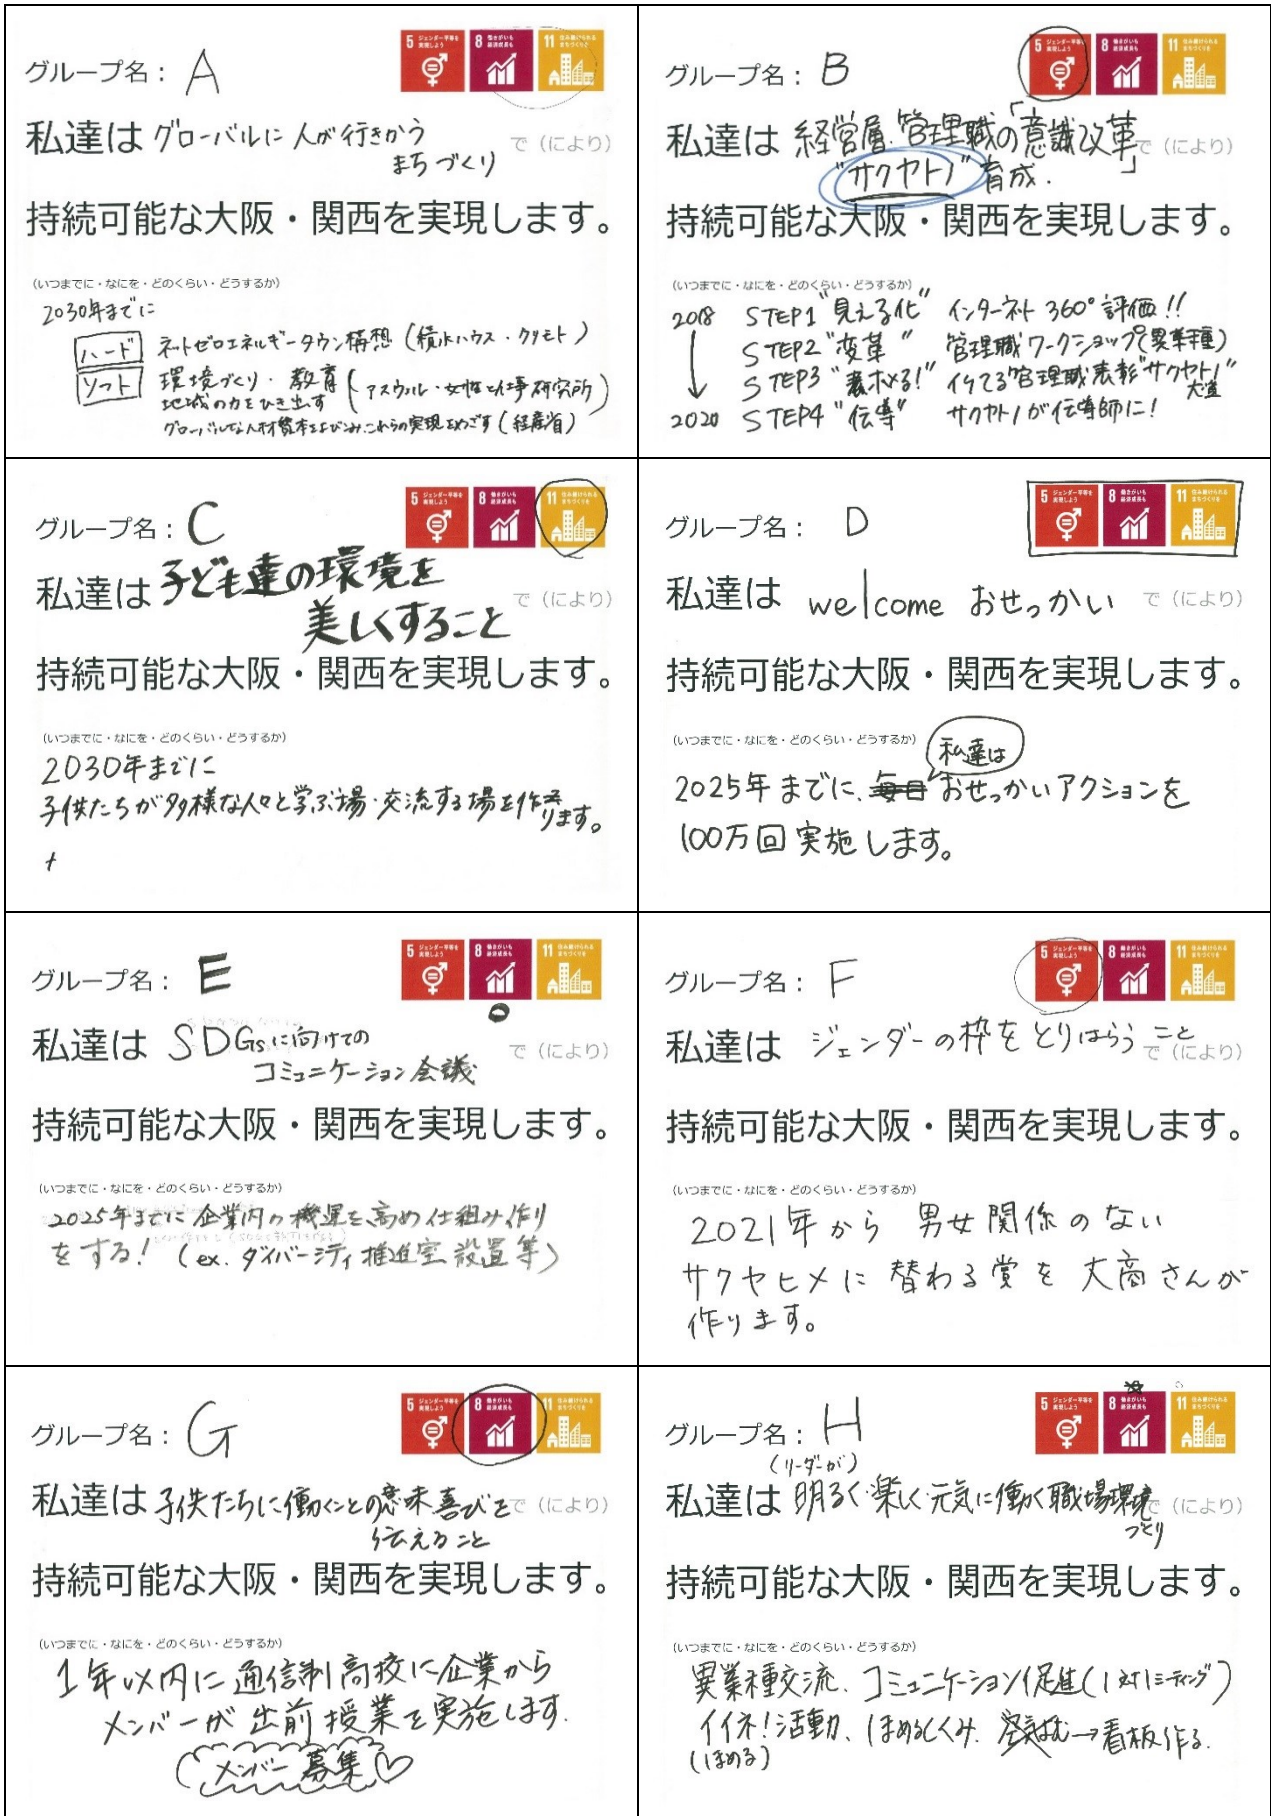 グループ名： A
5 ジェンダー平等を実現しよう
8 働きがいも経済成長も
11 住み続けられるまちづくりを
私達は グローバルに 人が行きかう で（により）
まちづくり
持続可能な大阪・関西を実現します。
（いつまでに・なにを・どのくらい・どうするか）
2030年までに
ハード ネットゼロエネルギータウン構想（積水ハウス・クリモト）
ソフト 環境づくり・教育
地域の力をひき出す （アスウル・女性と仕事研究所）
グローバルな人材 資本をよびこみ これらの実現をめざす（経産省）
グループ名： B
5 ジェンダー平等を実現しよう
8 働きがいも経済成長も
11 住み続けられるまちづくりを
私達は 経営層・管理職の「意識改革」 で（により）
"サクヤトノ" 育成.
持続可能な大阪・関西を実現します。
（いつまでに・なにを・どのくらい・どうするか）
2018 STEP1 "見える化" インターネット 360°評価!!
↓ STEP2 "変革" 管理職ワークショップ(異業種)
STEP3 "褒める!" イケてる管理職表彰"サクヤトノ"大賞
2020 STEP4 "伝導" サクヤトノが伝導師に!
グループ名： C
5 ジェンダー平等を実現しよう
8 働きがいも経済成長も
11 住み続けられるまちづくりを
私達は 子ども達の環境を
美しくすること で（により）
持続可能な大阪・関西を実現します。
（いつまでに・なにを・どのくらい・どうするか）
2030年までに
子供たちが多様な人々と学ぶ場・交流する場を作ります。
グループ名： D
5 ジェンダー平等を実現しよう
8 働きがいも経済成長も
11 住み続けられるまちづくりを
私達は welcome おせっかい で（により）
持続可能な大阪・関西を実現します。
（いつまでに・なにを・どのくらい・どうするか）
私達は
2025年までに、毎日おせっかいアクションを
100万回実施します。
グループ名： E
5 ジェンダー平等を実現しよう
8 働きがいも経済成長も
11 住み続けられるまちづくりを
私達は SDGsに向けての
コミュニケーション会議 で（により）
持続可能な大阪・関西を実現します。
（いつまでに・なにを・どのくらい・どうするか）
2025年までに企業内の機運を高め仕組み作り
をする! (ex. ダイバーシティ推進室 設置等)
グループ名： F
5 ジェンダー平等を実現しよう
8 働きがいも経済成長も
11 住み続けられるまちづくりを
私達は ジェンダーの枠をとりはらうこと で（により）
持続可能な大阪・関西を実現します。
（いつまでに・なにを・どのくらい・どうするか）
2021年から 男女関係のない
サクヤヒメに替わる賞を大商さんが
作ります。
グループ名： G
5 ジェンダー平等を実現しよう
8 働きがいも経済成長も
11 住み続けられるまちづくりを
私達は 子供たちに働くことの意味 喜びを で（により）
伝えること
持続可能な大阪・関西を実現します。
（いつまでに・なにを・どのくらい・どうするか）
1年以内に通信制高校に企業から
メンバーが出前授業を実施します.
メンバー募集♡
グループ名： H
5 ジェンダー平等を実現しよう
8 働きがいも経済成長も
11 住み続けられるまちづくりを
(リーダーが)
私達は 明るく・楽しく・元気に働く職場環境 で（により）
づくり
持続可能な大阪・関西を実現します。
（いつまでに・なにを・どのくらい・どうするか）
異業種交流、コミュニケーション促進(1対1ミーティング)
イイネ!活動、ほめるしくみ、空気よむ→看板作る.
(ほめる)